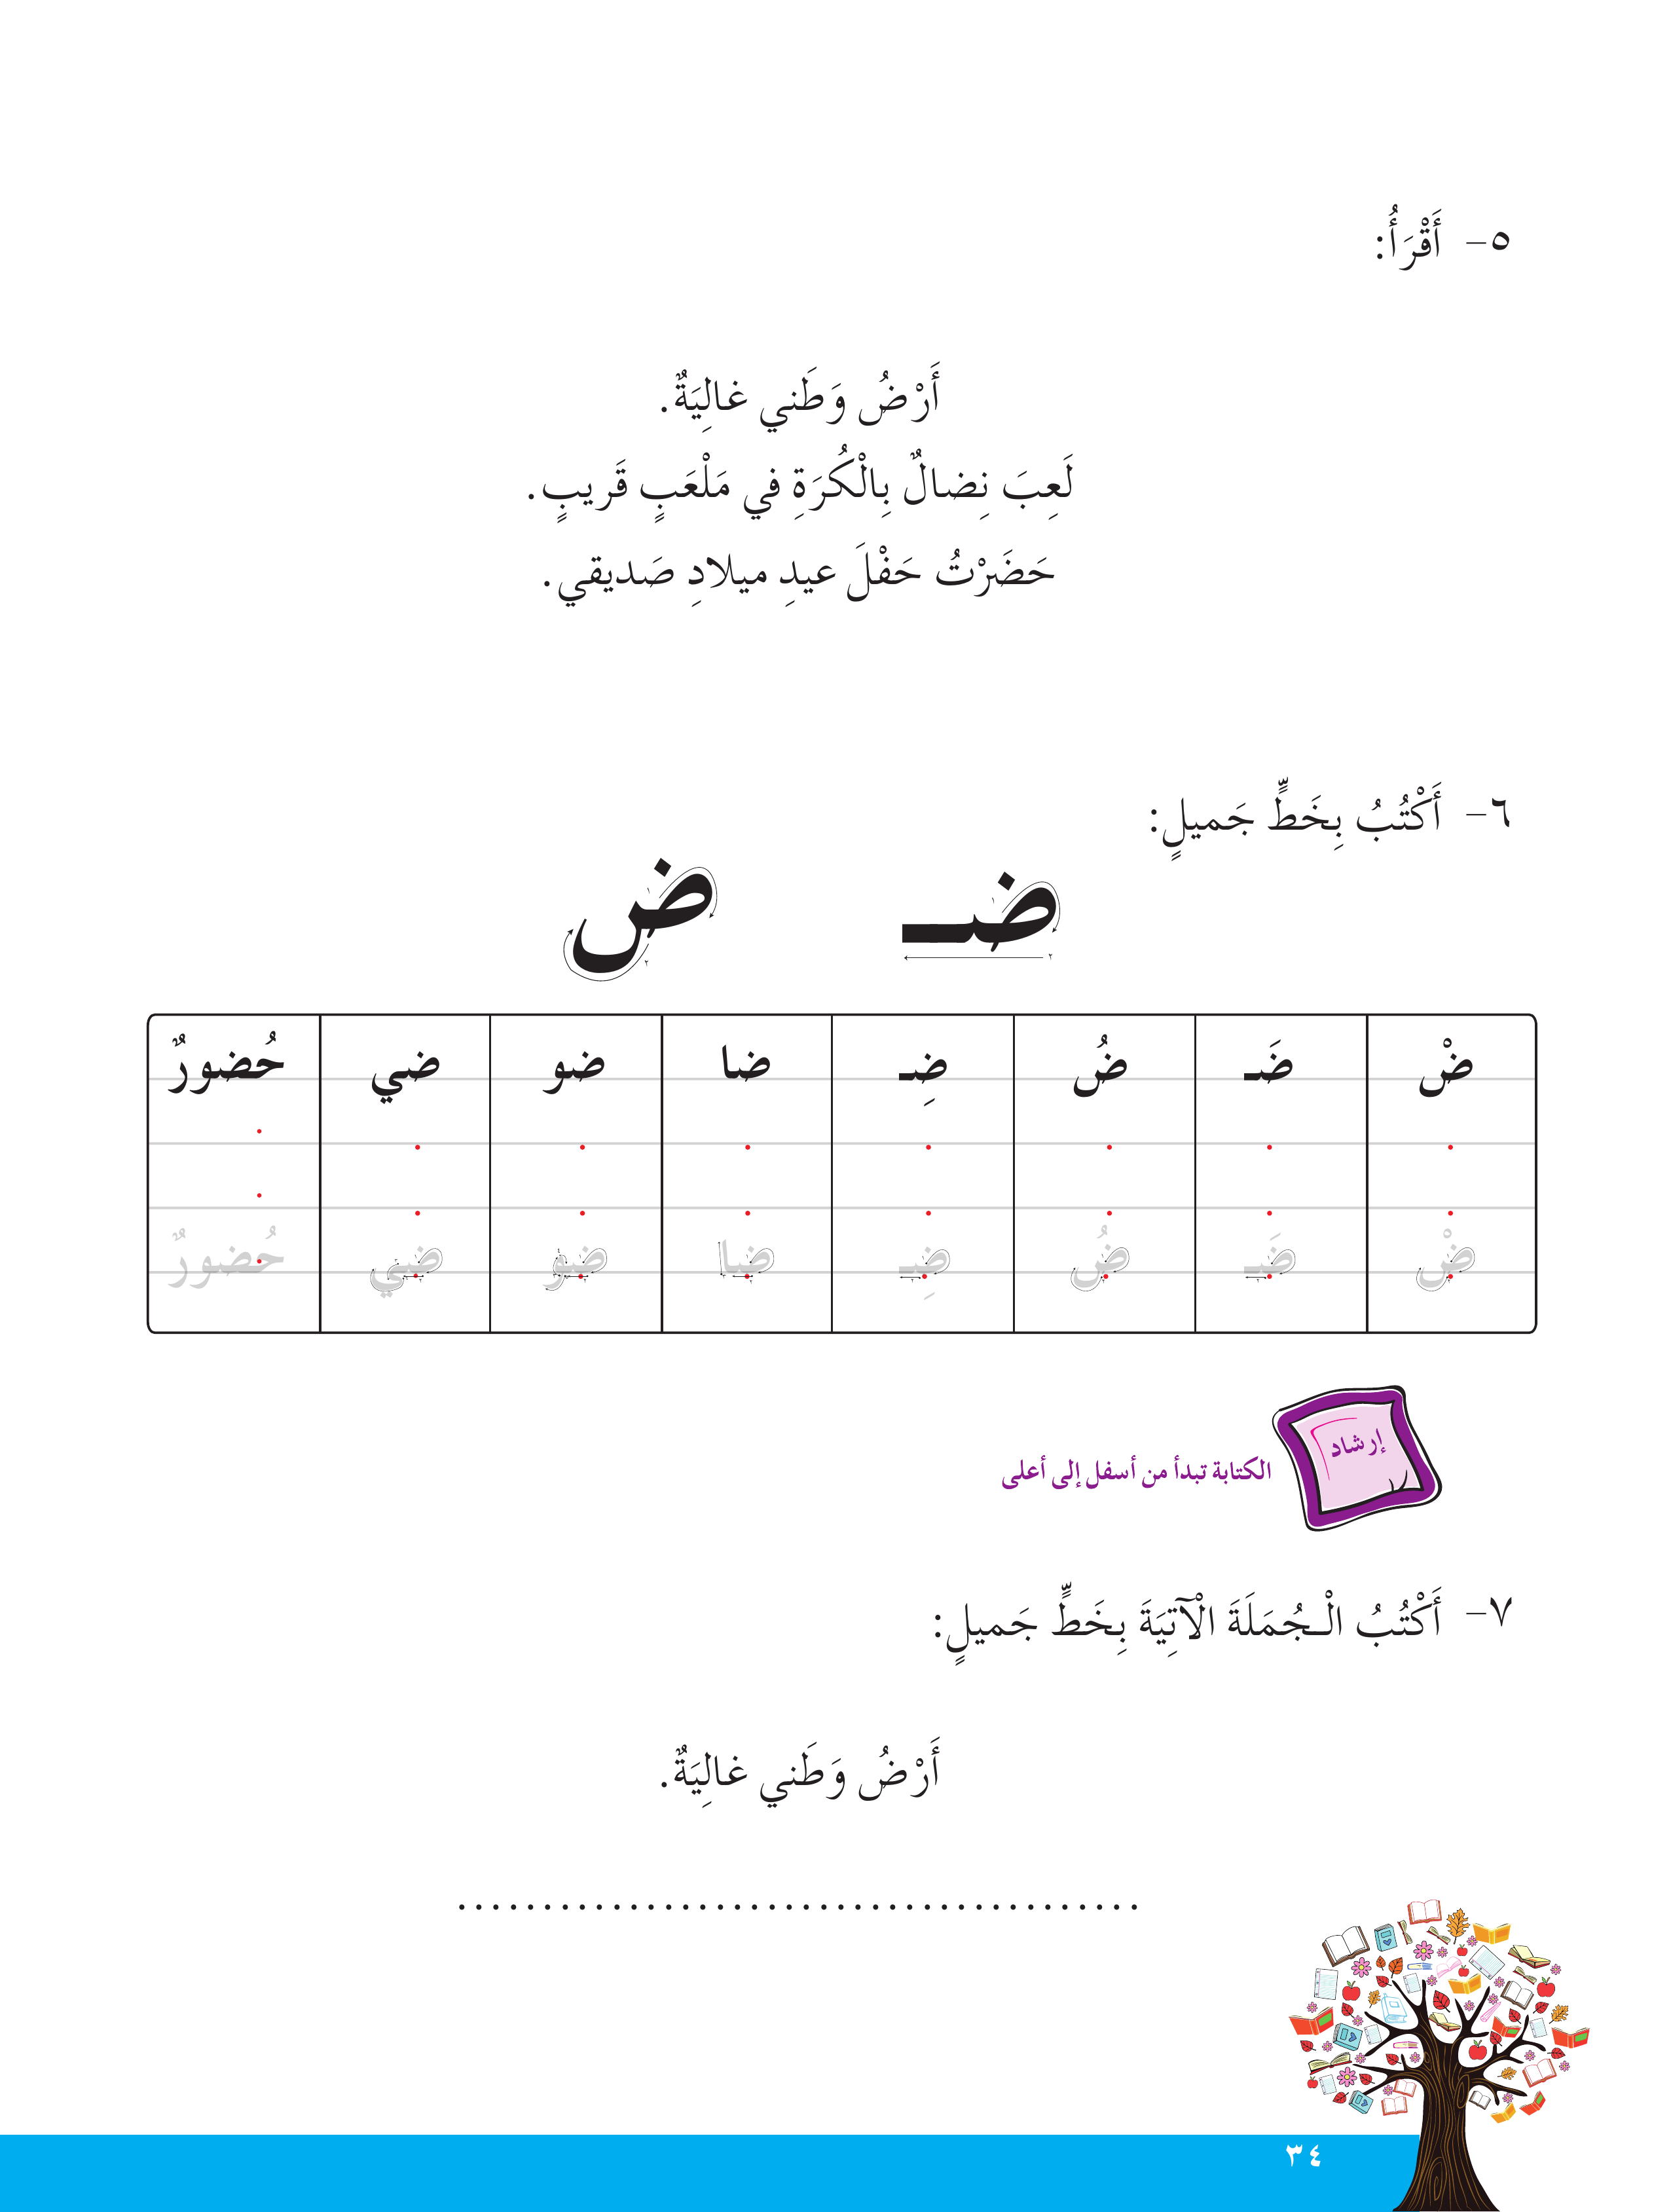 ٥- أَقْرَأُ:
أَرْضُ وَطَني غالِيَةٌ.
لَعِبَ نِضالٌ بِالْكُرَةِ في مَلْعَبٍ قَريبٍ.
حَضَرْتُ حَفْلَ عيدِ ميلادِ صَديقي.
٦- أَكْتُبُ بِخَطٍّ جَميلٍ:
ضـ ض
ضْ ضَـ ضُ ضِـ ضا ضو ضي حُضورٌ
ضْ ضَـ ضُ ضِـ ضا ضو ضي حُضورٌ
إرشاد
الكتابة تبدأ من أسفل إلى أعلى
٧- أَكْتُبُ الْـجُمَلَةَ الْآتِيَةَ بِخَطٍّ جَميلٍ:
أَرْضُ وَطَني غالِيَةٌ.
........................................
٣٤